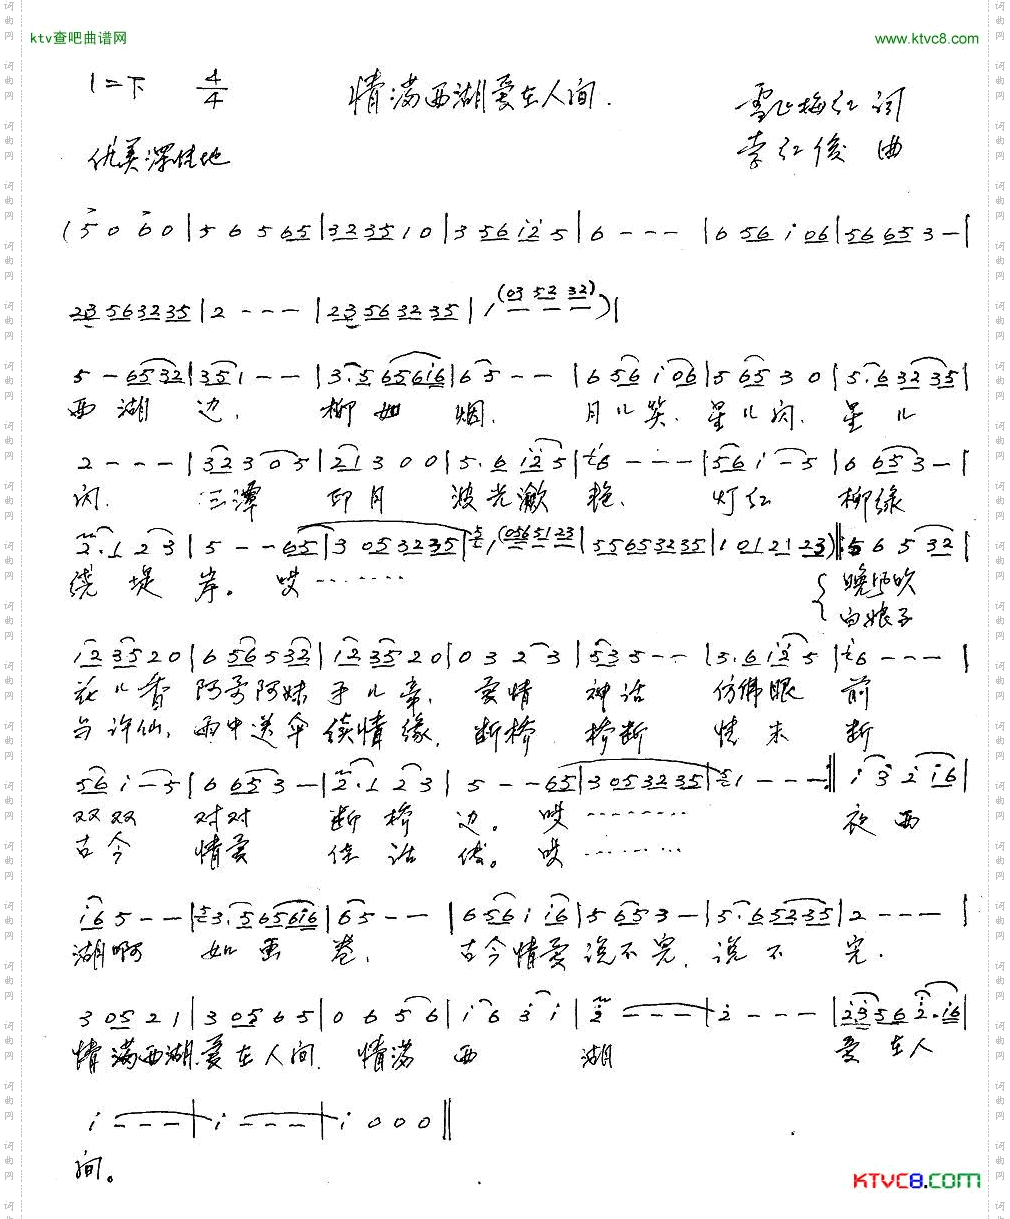 ktv查吧曲谱网 www.ktvc8.com
1=F 4/4 情满西湖爱在人间.
雪山梅红 词
优美深情地 李红俊 曲
(5 0 6 0 | 5 6 5 65 | 32 35 1 0 | 3 56 i2 5 | 6 - - - | 6 56 i 06 | 56 65 3 - |
23 56 32 35 | 2 - - - | 23 56 32 35 | 1 - - - (03 52 32) ) |
5 - 65 32 | 35 1 - - | 3. 5 65 61 6 | 6 5 - - | 6 56 i 06 | 5 65 3 0 | 5. 6 32 35 |
西 湖 边, 柳 如 烟, 月儿笑, 星儿闪, 星儿
2 - - - | 32 3 0 5 | 21 3 0 0 | 5. 6 i2 5 | 6 - - - | 56 i - 5 | 6 65 3 - |
闪, 三潭 印月 波光潋 艳, 灯红 柳绿
2. 1 2 3 | 5 - - 65 | 3 05 32 35 | 1 (05 65 1 23 | 5 5 65 32 35 | 1 01 21 23) |: 5 6 5 32 |
绕堤岸。哎…… 晚风吹
白娘子
12 35 2 0 | 6 56 5 32 | 12 35 2 0 | 0 3 2 3 | 53 5 - - | 3. 6 i2 5 | 6 - - - |
花儿香 阿哥阿妹手儿牵, 爱情 神话 仿佛眼 前
与许仙, 雨中送伞续情缘, 断桥 桥断 情未 断
56 i - 5 | 6 65 3 - | 2. 1 2 3 | 5 - - 65 | 3 05 32 35 | 1 - - - :| i 3 2 i6 |
双双 对对 断桥边。哎……… 在西
古今 情爱 佳话传。哎………
i6 5 - - | 3. 5 65 61 6 | 65 - - | 6 56 i i6 | 5 65 3 - | 5. 6 52 35 | 2 - - - |
湖啊 如画卷, 古今情爱说不完, 说不 完.
3 05 2 1 | 3 05 6 5 | 0 6 5 6 | i 6 3 i | 2 - - - | 2 - - - | 23 56 2. i6 |
情满西湖爱在人间, 情满 西 湖 爱在人
i - - - | i - - - | i 0 0 0 ||
间。
KTVC8.com
词曲网